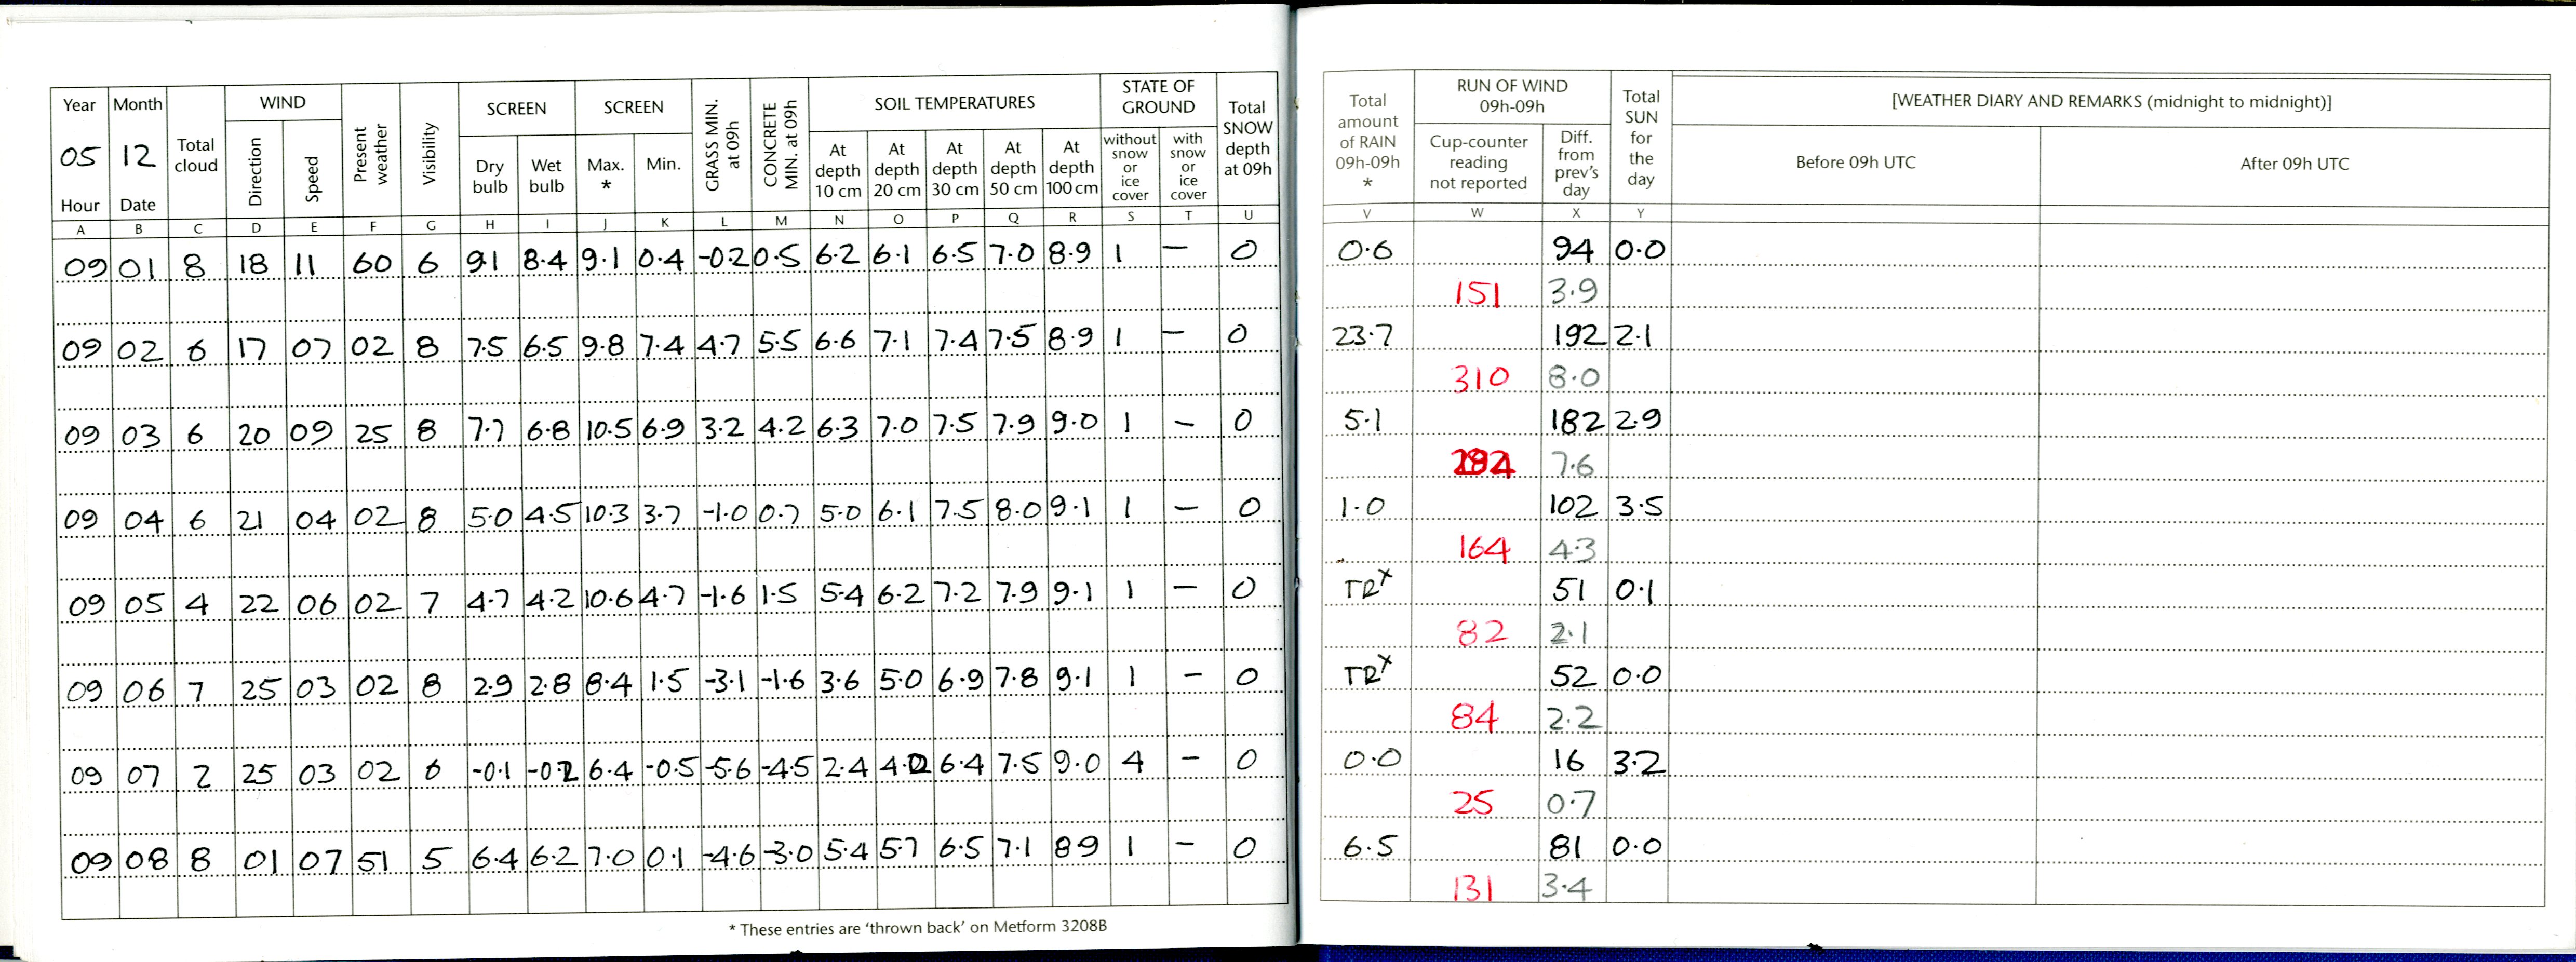 Year Month Total cloud WIND Present weather Visibility SCREEN SCREEN GRASS MIN. at 09h CONCRETE MIN. at 09h SOIL TEMPERATURES STATE OF GROUND Total SNOW depth at 09h
05 12 Direction Speed Dry bulb Wet bulb Max. * Min. At depth 10 cm At depth 20 cm At depth 30 cm At depth 50 cm At depth 100 cm without snow or ice cover with snow or ice cover
Hour Date
A B C D E F G H I J K L M N O P Q R S T U
09 01 8 18 11 60 6 9.1 8.4 9.1 0.4 -0.2 0.5 6.2 6.1 6.5 7.0 8.9 1 — 0
09 02 6 17 07 02 8 7.5 6.5 9.8 7.4 4.7 5.5 6.6 7.1 7.4 7.5 8.9 1 — 0
09 03 6 20 09 25 8 7.7 6.8 10.5 6.9 3.2 4.2 6.3 7.0 7.5 7.9 9.0 1 — 0
09 04 6 21 04 02 8 5.0 4.5 10.3 3.7 -1.0 0.7 5.0 6.1 7.5 8.0 9.1 1 — 0
09 05 4 22 06 02 7 4.7 4.2 10.6 4.7 -1.6 1.5 5.4 6.2 7.2 7.9 9.1 1 — 0
09 06 7 25 03 02 8 2.9 2.8 8.4 1.5 -3.1 -1.6 3.6 5.0 6.9 7.8 9.1 1 — 0
09 07 2 25 03 02 6 -0.1 -0.2 6.4 -0.5 -5.6 -4.5 2.4 6.4 7.5 9.0 4 — 0
09 08 8 01 07 51 5 6.4 6.2 7.0 0.1 -4.6 -3.0 5.4 5.7 6.5 7.1 8.9 1 — 0
* These entries are 'thrown back' on Metform 3208B
Total amount of RAIN 09h-09h * RUN OF WIND 09h-09h Total SUN for the day [WEATHER DIARY AND REMARKS (midnight to midnight)]
Cup-counter reading not reported Diff. from prev's day Before 09h UTC After 09h UTC
V W X Y
0.6 94 0.0
151 3.9
23.7 192 2.1
310 8.0
5.1 182 2.9
7.6
1.0 102 3.5
164 4.3
TRx 51 0.1
82 2.1
TRx 52 0.0
84 2.2
0.0 16 3.2
25 0.7
6.5 81 0.0
131 3.4